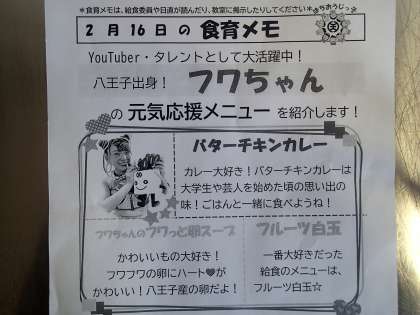 *食育メモは、給食委員や日直が読んだり、教室に掲示したりしてください*
はちおうじっ
2月16日の食育メモ
YouTuber・タレントとして大活躍中!
八王子出身! フワちゃん
の 元気応援メニュー を紹介します!
バターチキンカレー
カレー大好き!バターチキンカレーは
大学生や芸人を始めた頃の思い出の
味!ごはんと一緒に食べようね!
フワちゃんのフワっと卵スープ
かわいいもの大好き!
フワフワの卵にハート♥が
かわいい!八王子産の卵だよ!
フルーツ白玉
一番大好きだった
給食のメニューは、
フルーツ白玉☆